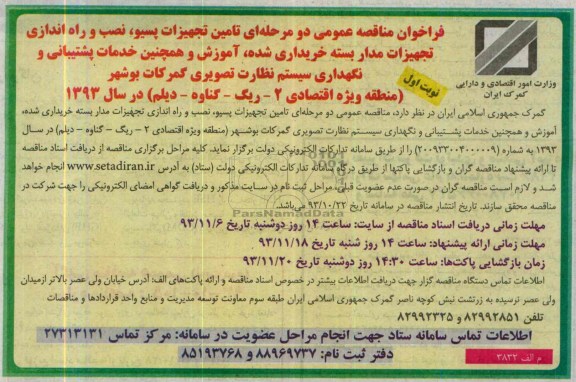 فراخوان مناقصه عمومی دو مرحله‌ای تامین تجهیزات پسیو، نصب و راه اندازی
تجهیزات مدار بسته خریداری شده، آموزش و همچنین خدمات پشتیبانی و
نگهداری سیستم نظارت تصویری گمرکات بوشهر
(منطقه ویژه اقتصادی ۲ - ریگ - گناوه - دیلم) در سال ۱۳۹۳
نوبت اول
وزارت امور اقتصادی و دارایی
گمرک ایران
گمرک جمهوری اسلامی ایران در نظر دارد، مناقصه عمومی دو مرحله‌ای تامین تجهیزات پسیو، نصب و راه اندازی تجهیزات مدار بسته خریداری شده،
آموزش و همچنین خدمات پشتیبانی و نگهداری سیستم نظارت تصویری گمرکات بوشهر (منطقه ویژه اقتصادی ۲ - ریگ - گناوه - دیلم) در سال
۱۳۹۳ به شماره (۲۰۰۹۳۳۰۰۴۰۰۰۰۰۹) را از طریق سامانه تدارکات الکترونیکی دولت برگزار نماید. کلیه مراحل برگزاری مناقصه از دریافت اسناد مناقصه
تا ارائه پیشنهاد مناقصه گران و بازگشایی پاکتها از طریق درگاه سامانه تدارکات الکترونیکی دولت (ستاد) به آدرس www.setadiran.ir انجام خواهد
شد و لازم است مناقصه گران در صورت عدم عضویت قبلی، مراحل ثبت نام در سایت مذکور و دریافت گواهی امضای الکترونیکی را جهت شرکت در
مناقصه محقق سازند. تاریخ انتشار مناقصه در سامانه تاریخ ۹۳/۱۰/۲۲ می‌باشد.
مهلت زمانی دریافت اسناد مناقصه از سایت: ساعت ۱۴ روز دوشنبه تاریخ ۹۳/۱۱/۶
مهلت زمانی ارائه پیشنهاد: ساعت ۱۴ روز شنبه تاریخ ۹۳/۱۱/۱۸
زمان بازگشایی پاکت‌ها: ساعت ۱۴:۳۰ روز دوشنبه تاریخ ۹۳/۱۱/۲۰
ParsNamadData
اطلاعات تماس دستگاه مناقصه گزار جهت دریافت اطلاعات بیشتر در خصوص اسناد مناقصه و ارائه پاکت‌های الف: آدرس خیابان ولی عصر بالاتر ازمیدان
ولی عصر نرسیده به زرتشت نبش کوچه ناصر گمرک جمهوری اسلامی ایران طبقه سوم معاونت توسعه مدیریت و منابع واحد قراردادها و مناقصات
تلفن ۸۲۹۹۲۸۵۱ و ۸۲۹۹۲۳۲۵
اطلاعات تماس سامانه ستاد جهت انجام مراحل عضویت در سامانه: مرکز تماس ۲۷۳۱۳۱۳۱
دفتر ثبت نام: ۸۸۹۶۹۷۳۷ و ۸۵۱۹۳۷۶۸
م الف ۳۸۳۲